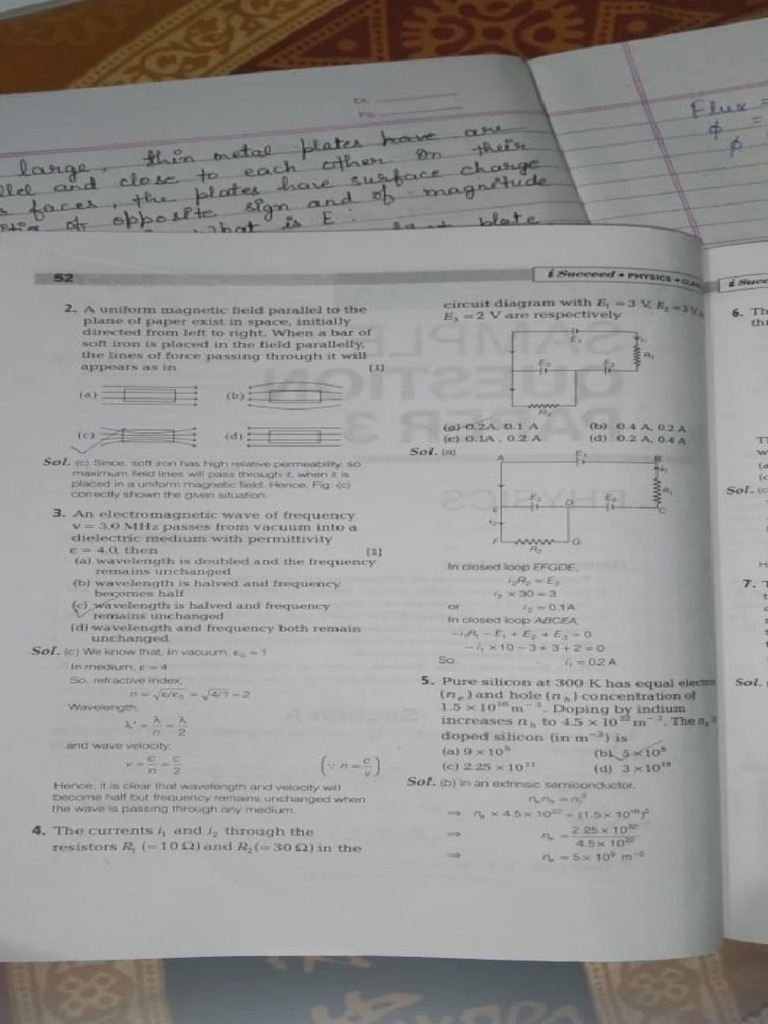 Dt.
Pg.
large, thin metal plates have are
and close to each other. On their
faces, the plates have surface charge
of opposite sign and of magnitude
what is E
plate
Flux =
ϕ =
ϕ
52
i Succeed • PHYSICS •
i Succeed
2. A uniform magnetic field parallel to the
plane of paper exist in space, initially
directed from left to right. When a bar of
soft iron is placed in the field parallelly,
the lines of force passing through it will
appears as in [1]
(a) (b)
(c) (d)
Sol. (c) Since, soft iron has high relative permeability, so
maximum field lines will pass through it, when it is
placed in a uniform magnetic field. Hence, Fig. (c)
correctly shown the given situation.
3. An electromagnetic wave of frequency
ν = 3.0 MHz passes from vacuum into a
dielectric medium with permittivity
ε = 4.0, then [1]
(a) wavelength is doubled and the frequency
remains unchanged
(b) wavelength is halved and frequency
becomes half
(c) wavelength is halved and frequency
remains unchanged
(d) wavelength and frequency both remain
unchanged
Sol. (c) We know that, in vacuum, ε₀ = 1
In medium, ε = 4
So, refractive index,
n = √ε/ε₀ = √4/1 = 2
Wavelength,
λ' = λ/n = λ/2
and wave velocity,
v = c/n = c/2 (∵ n = c/v)
Hence, it is clear that wavelength and velocity will
become half but frequency remains unchanged when
the wave is passing through any medium.
4. The currents i₁ and i₂ through the
resistors R₁ (=10 Ω) and R₂ (= 30 Ω) in the
circuit diagram with E₁ = 3 V, E₂ = 3 V,
E₃ = 2 V are respectively
E₁
i₁
R₁
E₂
E₃
R₂
(a) 0.2A, 0.1 A (b) 0.4 A, 0.2 A
(c) 0.1A, 0.2 A (d) 0.2 A, 0.4 A
Sol. (a)
A E₁ B
i₁
R₁
E E₂ D E₃ C
i₂
F R₂ G
In closed loop EFGDE,
i₂R₂ = E₂
i₂ × 30 = 3
or i₂ = 0.1A
In closed loop ABCEA,
−i₁R₁ − E₁ + E₂ + E₃ = 0
− i₁ × 10 − 3 + 3 + 2 = 0
So, i₁ = 0.2 A
5. Pure silicon at 300 K has equal
(nₑ) and hole (nₕ) concentration of
1.5 × 10¹⁶ m⁻³. Doping by indium
increases nₕ to 4.5 × 10²² m⁻³. The
doped silicon (in m⁻³) is
(a) 9 × 10⁵ (b) 5 × 10⁹
(c) 2.25 × 10¹¹ (d) 3 × 10¹⁹
Sol. (b) In an extrinsic semiconductor,
nₑnₕ = nᵢ²
⇒ nₑ × 4.5 × 10²² = (1.5 × 10¹⁶)²
⇒ nₑ = 2.25 × 10³² / 4.5 × 10²²
⇒ nₑ = 5 × 10⁹ m⁻³
6.
Sol.
7.
Sol.